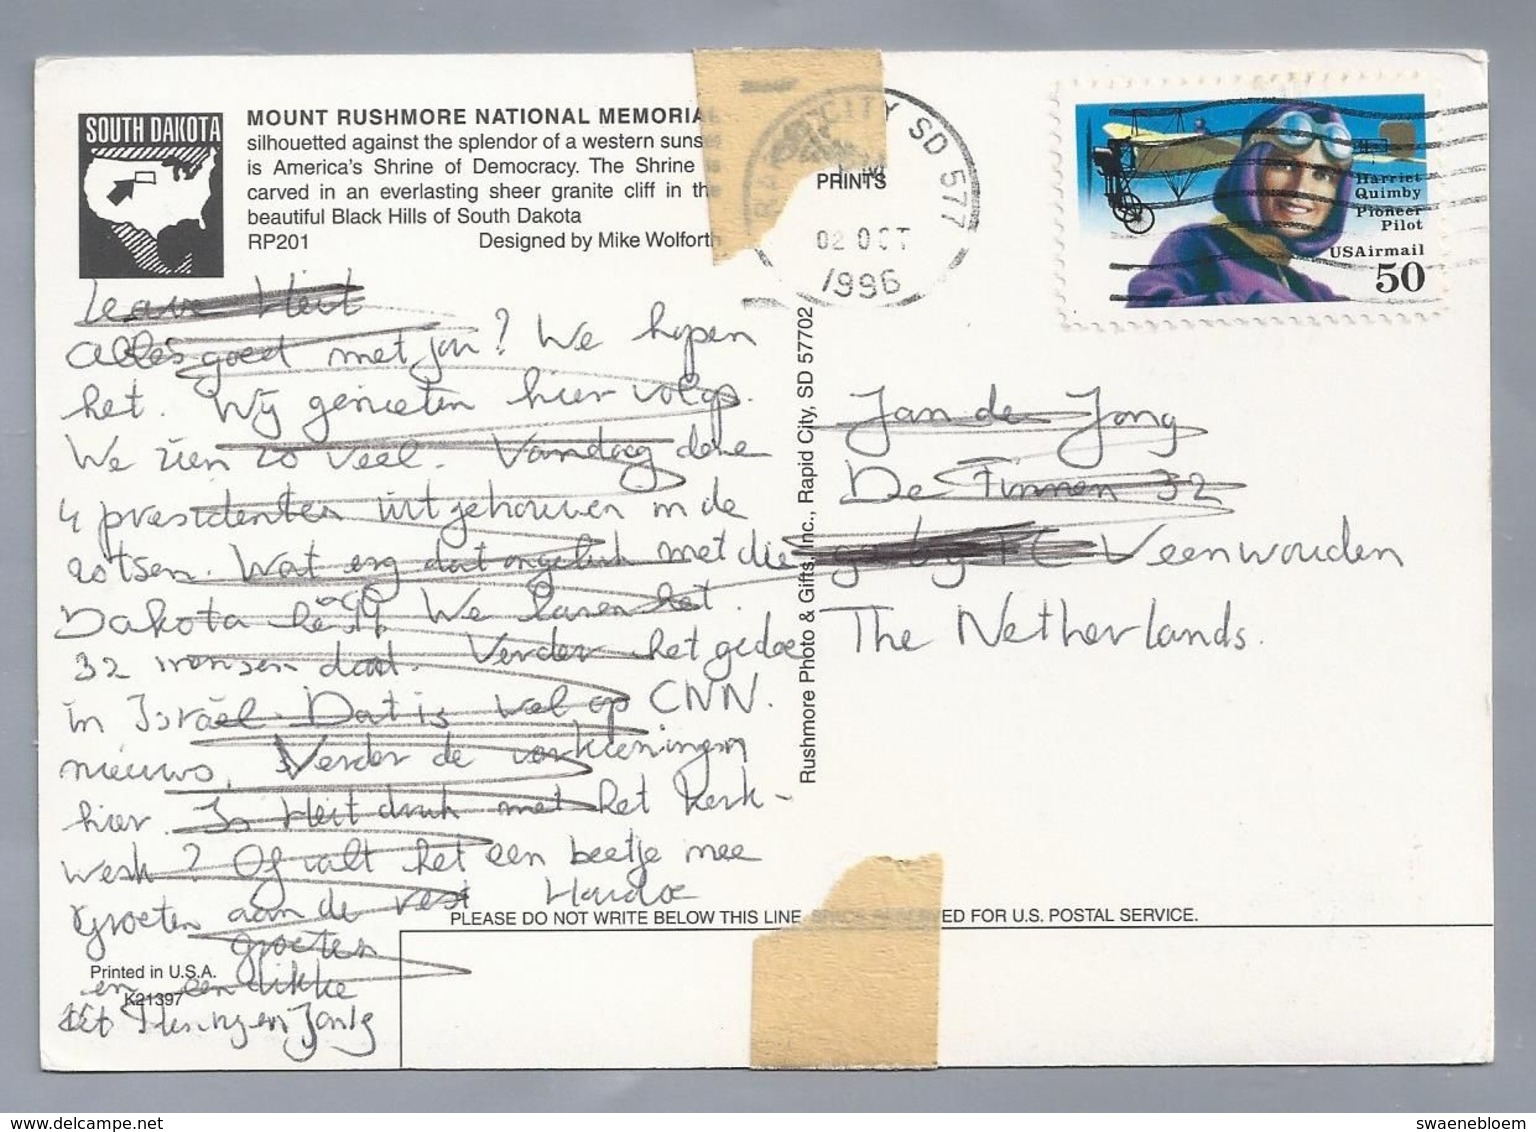 SOUTH DAKOTA
MOUNT RUSHMORE NATIONAL MEMORIA
silhouetted against the splendor of a western suns
is America's Shrine of Democracy. The Shrine
carved in an everlasting sheer granite cliff in the
beautiful Black Hills of South Dakota
RP201 Designed by Mike Wolforth
PRINTS
RAPID CITY SD 577
02 OCT
1996
Harriet
Quimby
Pioneer
Pilot
USAirmail
50
Alles goed met jou? We hopen
het. Wij genieten hier volop.
We zien zo veel. Vandaag deze
4 presidenten uitgehouwen in de
rotsen. Wat erg dat ongeluk met die
Dakota hè!! We lazen het.
32 mensen dood. Verder het gedoe
in Israël. Dat is wel op CNN.
nieuws. Verder de verkiezingen
hier. Is Heit druk met het kerk-
werk? Of valt het een beetje mee
Groeten aan de rest
groeten
en een dikke
Jan de Jong
De Finnen 32
Veenwouden
The Netherlands.
Rushmore Photo & Gifts, Inc., Rapid City, SD 57702
PLEASE DO NOT WRITE BELOW THIS LINE, SPACE RESERVED FOR U.S. POSTAL SERVICE.
Printed in U.S.A.
K21397
delcampe.net
swaenebloem